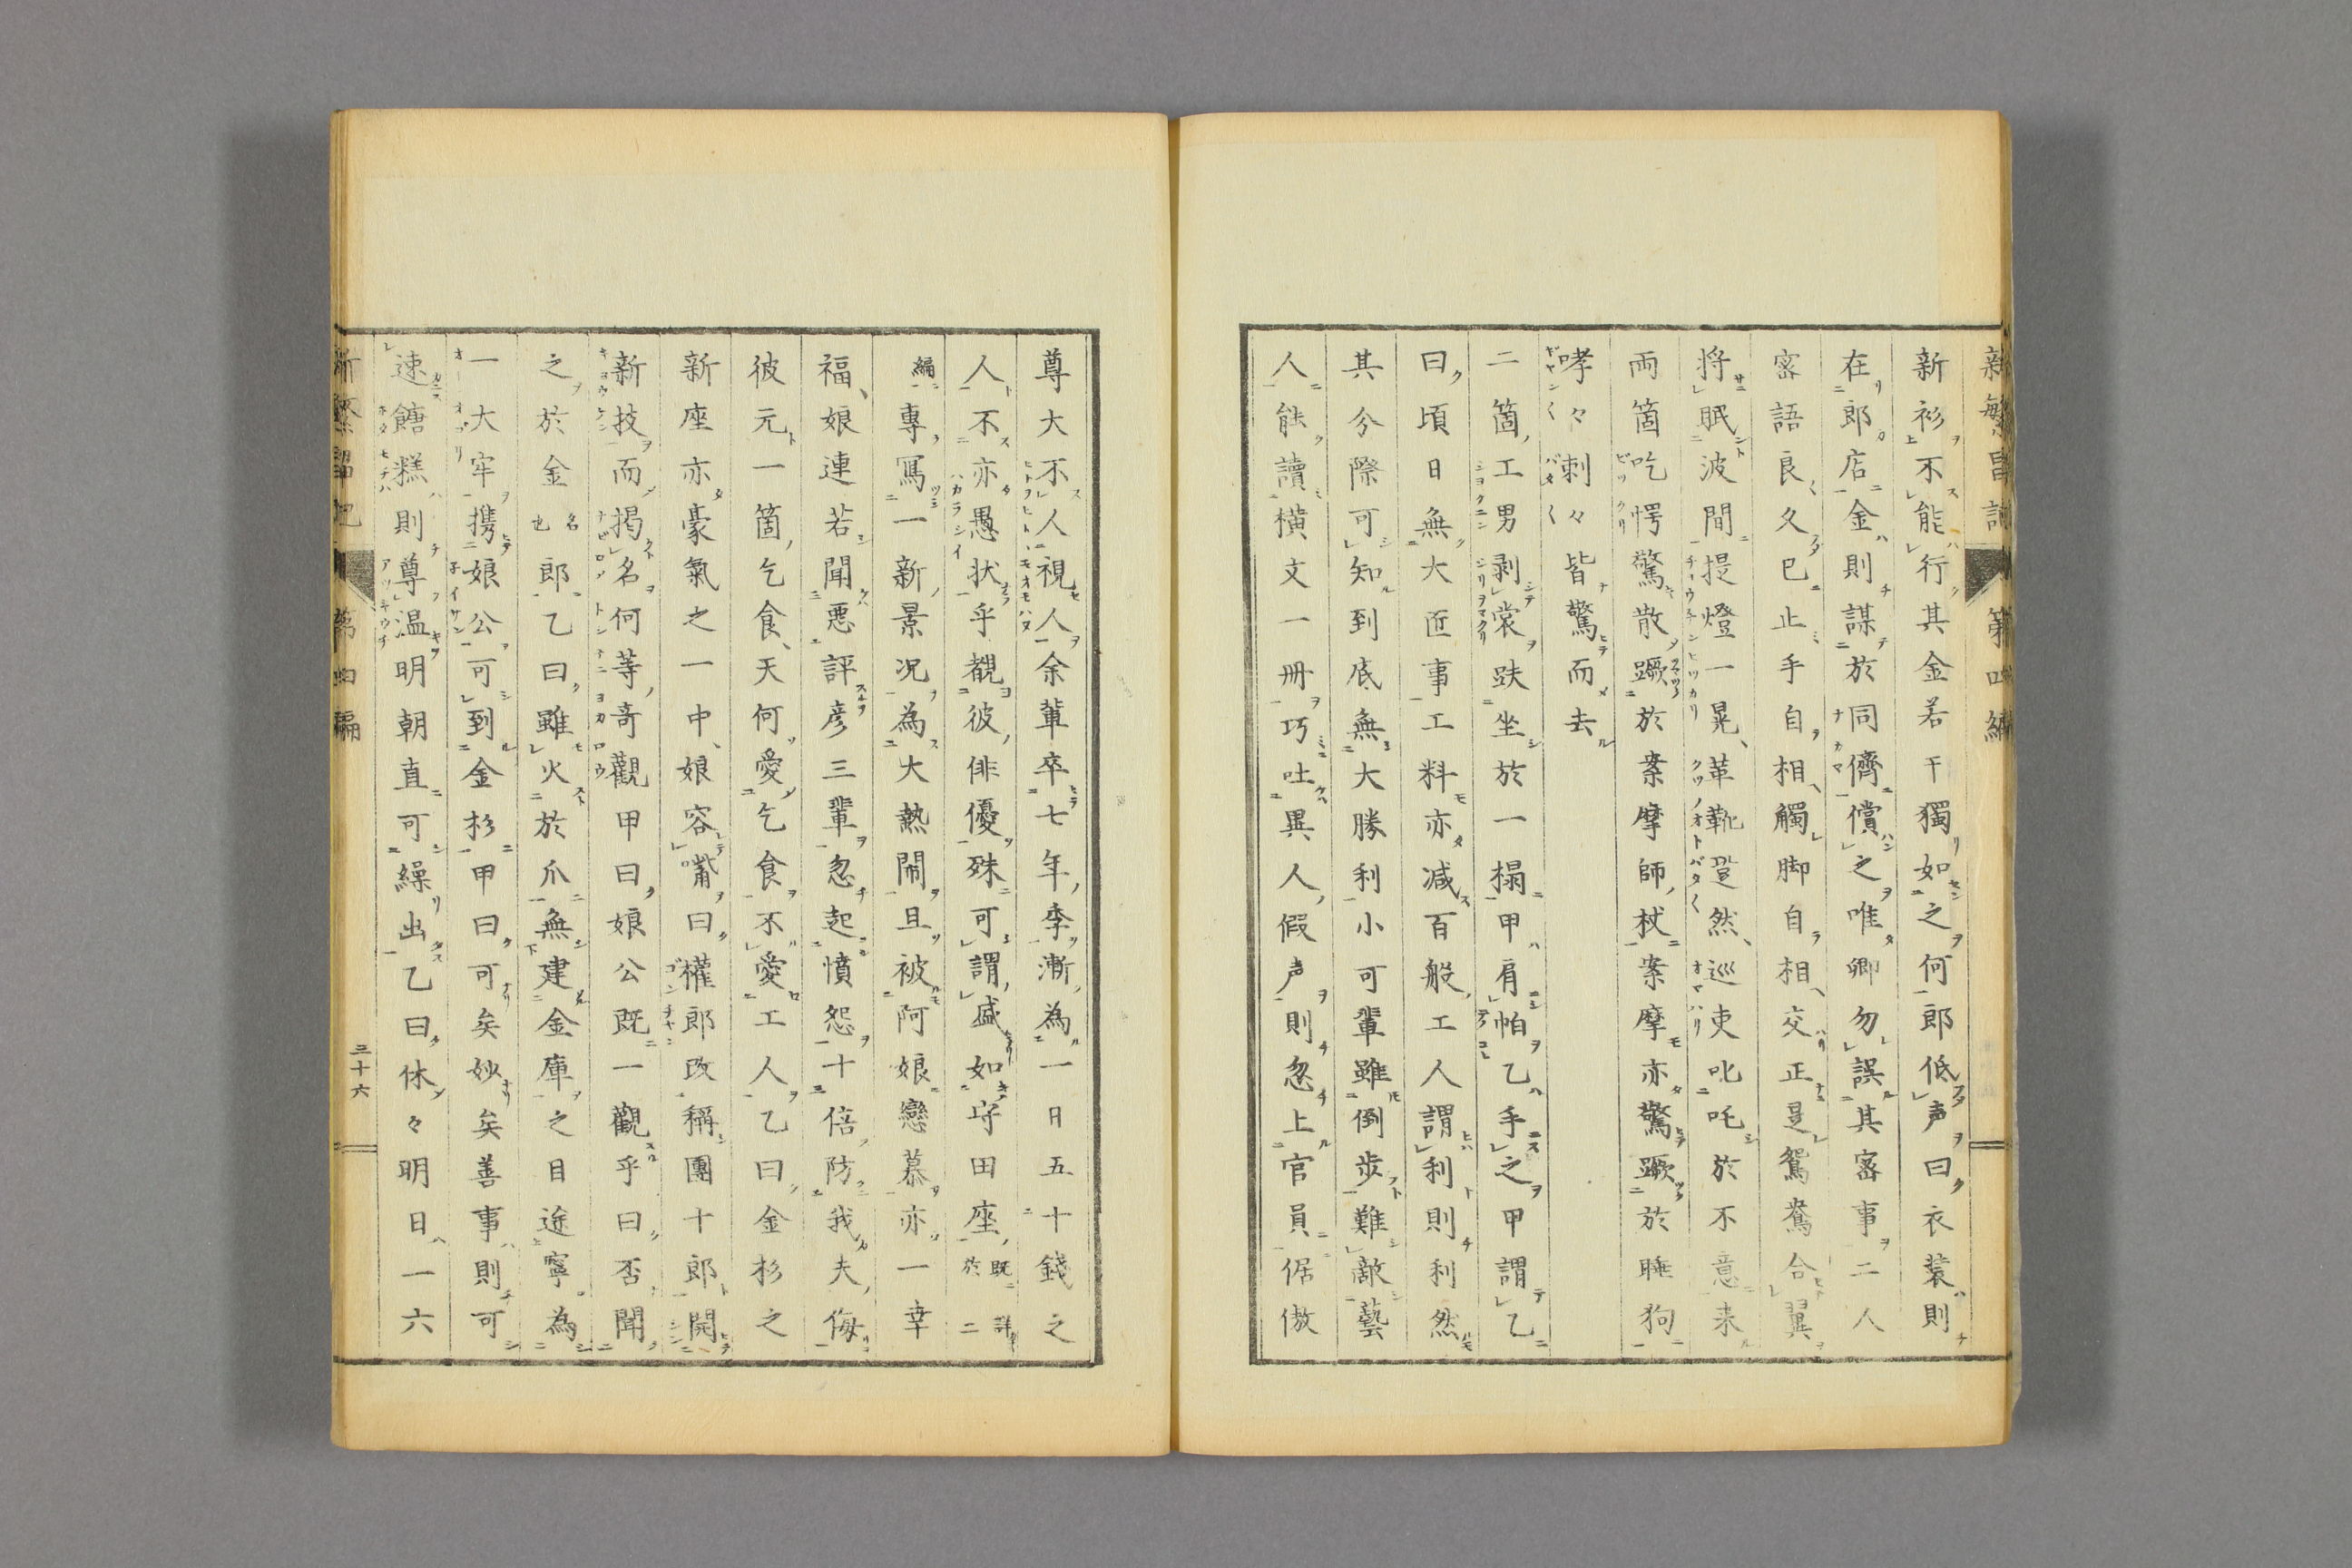 新繁昌記 第四編
新衫不能行其金若干獨如之何郎低声曰衣裝則
在郎店金則謀於同儕償之唯卿勿誤其密事二人
密語良久已止手自相觸脚自相交正是鴛鴦合翼
将眠波間提燈一晃革靴跫然巡吏叱吒於不意来
両箇吃愕驚散蹶於桼摩師杖桼摩亦驚蹶於睡狗
哮々刺々皆驚而去
二箇工男剥裳趺坐於一榻甲肩帕乙手之甲謂乙
曰頃日無大匠事工料亦减百般工人謂利則利然
其分際可知到底無大勝利小可輩雖倒歩難敵藝
人能讀横文一冊巧吐異人假声則忽上官員倨傲
尊大不人視人余輩卒七年季漸為一日五十錢之
人不亦愚状乎覩彼俳優殊可謂盛如守田座既詳於二
編專寫一新景况為大熱閙且被阿娘戀慕亦一幸
福娘連若聞悪評彦三輩忽起憤怨十倍防我夫侮
彼元一箇乞食天何愛乞食不愛工人乙曰金杉之
新座亦豪氣之一中娘容嘴曰權郎改稱團十郎開
新技而掲名何等奇觀甲曰娘公既一觀乎曰否聞
之於金名也郎乙曰雖火於爪無建金庫之目途寧為
一大牢攜娘公可到金杉甲曰可矣妙矣善事則可
速饍糕則尊温明朝直可繰出乙曰休々明日一六
新繁昌記 第四編 三十六